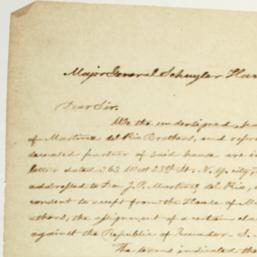 Major General Schuyler Ham
Dear Sir.
We the undersigned,
of Martinez del Rio Brothers, and repre
deceased partner of said house are in
letter dated 63 West 28th St. N. Yk city,
addressed to Don J. P. Martinez del Rio,
consent to accept from the House of Ma
thers, the assignment of a certain cla
against the Republic of Ecuador
The terms indicated th